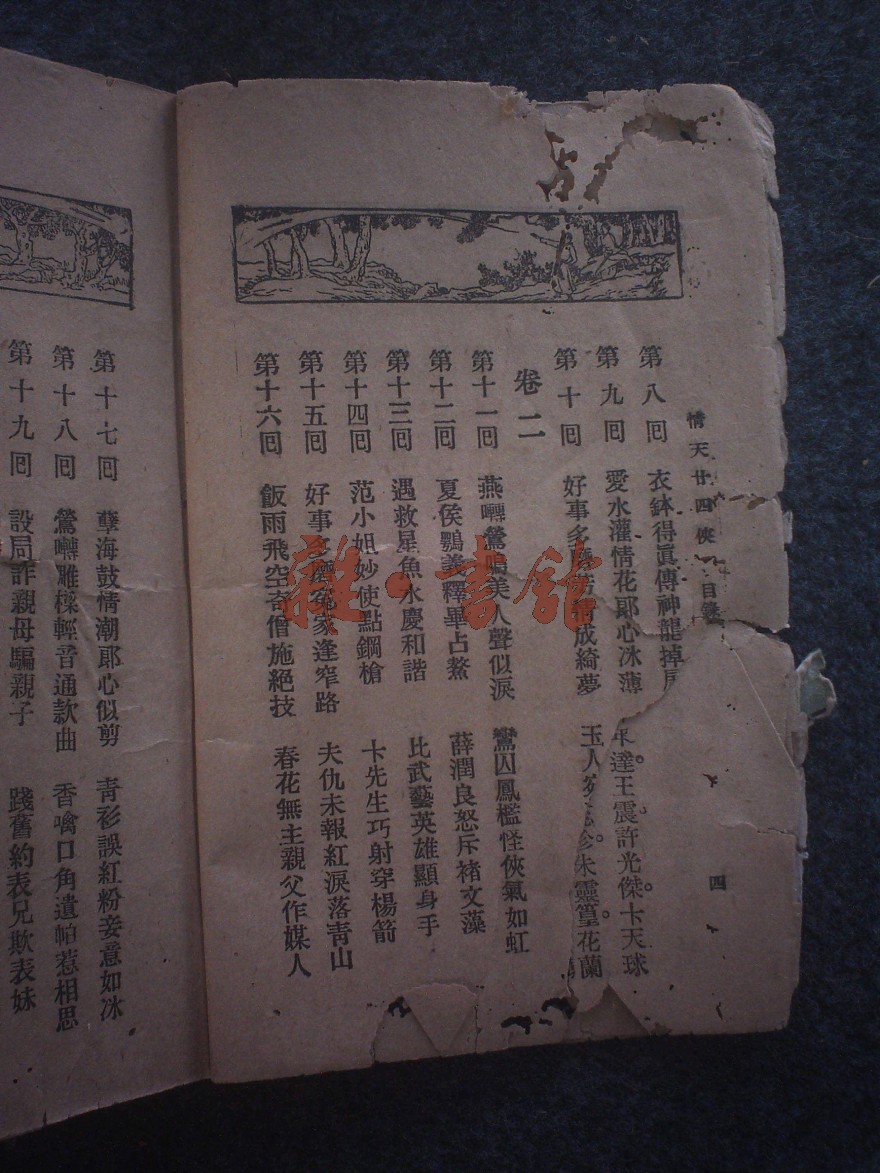 情天廿四俠 目錄 四
第八回 衣鉢得眞傳神龍掉
第九回 愛水灌情花郎心冰薄 達王震許光傑卞天球
第十回 好事多 情成綺夢 玉人 朱靈篁花蘭
卷二
第十一回 燕囀鶯鳴美人聲似淚 鸞囚鳳檻怪俠氣如虹
第十二回 夏侯鶚義釋畢占鰲 薛潤良怒斥褚文藻
第十三回 遇救星魚水慶和諧 比武藝英雄顯身手
第十四回 范小姐妙使點鋼槍 卞先生巧射穿楊箭
第十五回 好事多磨冤家逢窄路 夫仇未報紅淚落青山
第十六回 飯雨飛空奇僧施絕技 春花無主親父作媒人
第十七回 孽海鼓情潮郎心似剪 青衫誤紅粉妾意如冰
第十八回 鶯囀雕樑輕音通款曲 香噙口角遺帕惹相思
第十九回 設局詐親母騙親子 踐舊約表兄欺表妹
雜·書館